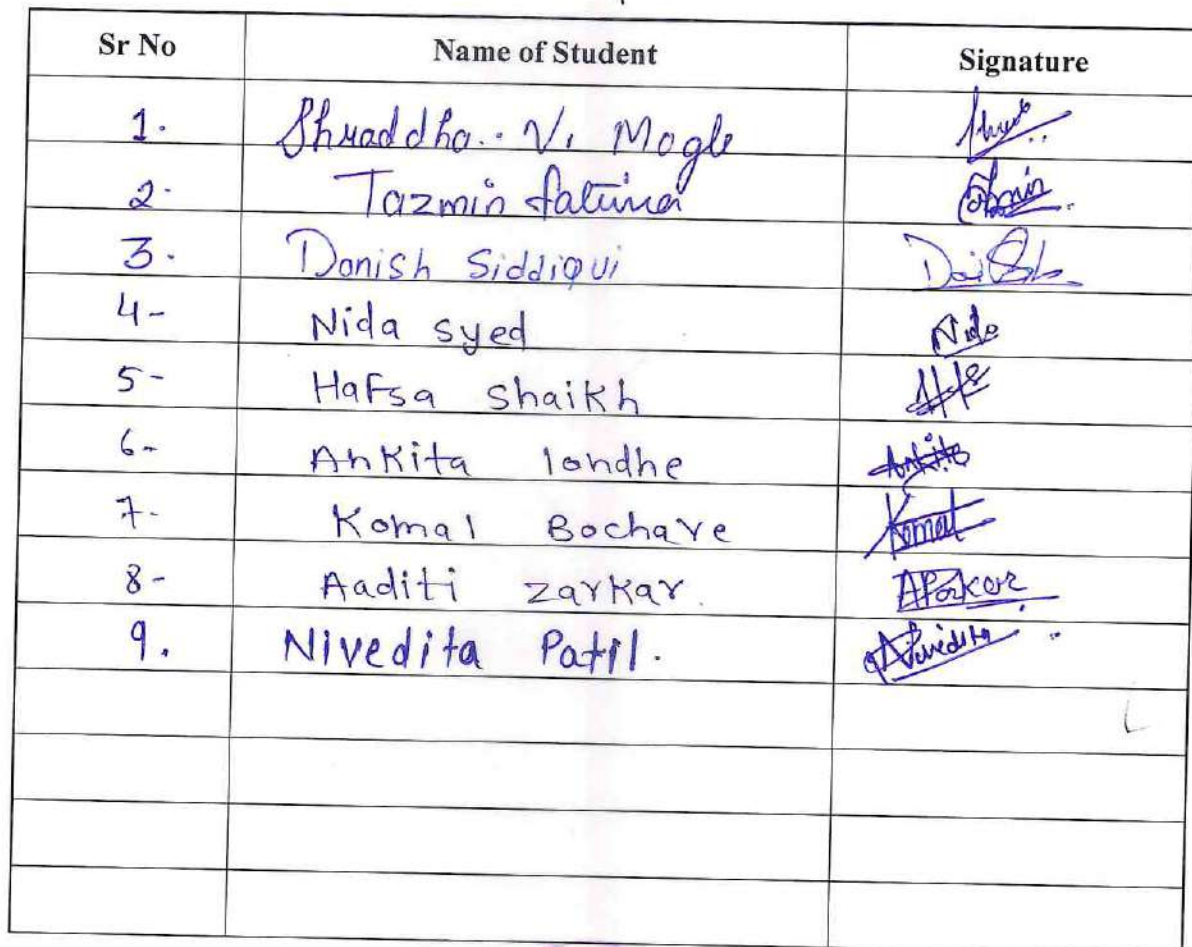 Sr No Name of Student Signature
1. Shraddha.. V. Mogle
2. Tazmin fatima
3. Danish Siddiqui
4- Nida syed Nida
5- Hafsa Shaikh
6- Ankita londhe Ankita
7- Komal Bochare Komal
8- Aaditi zarkar.
9. Nivedita Patil. Nivedita